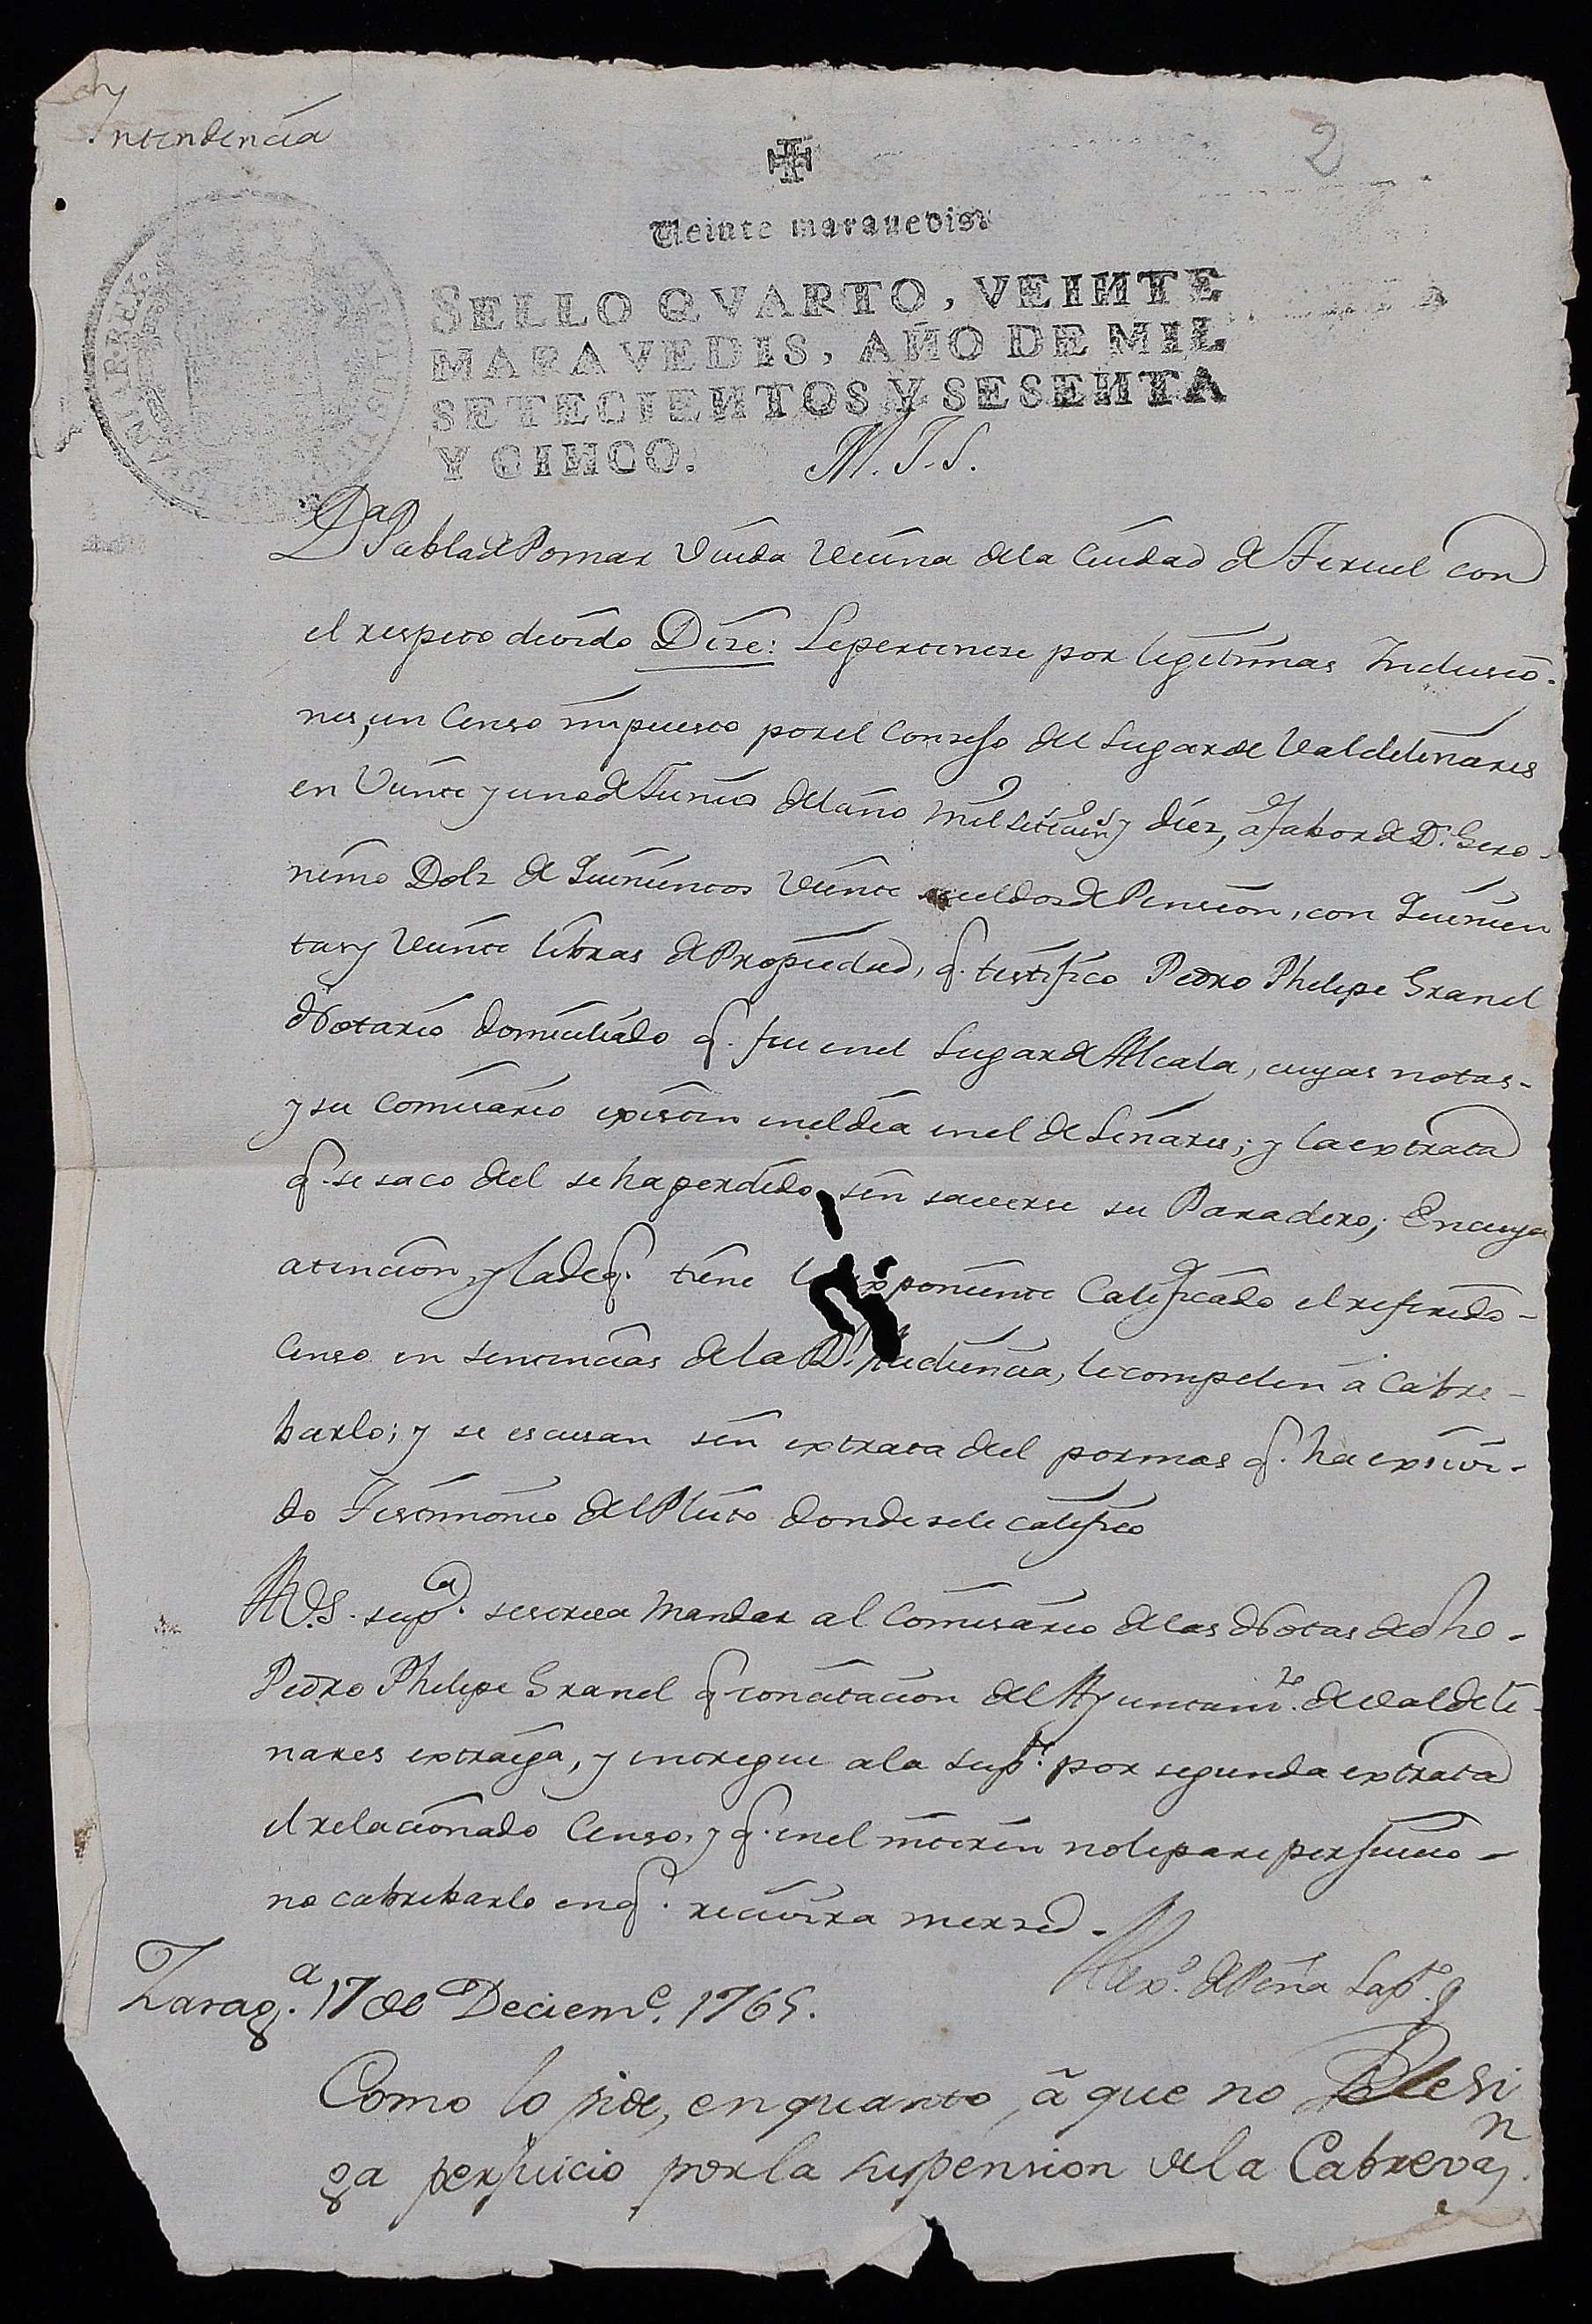 Intendencia
2
Veinte marauedis.
SELLO QVARTO, VEINTE
MARAVEDIS, AÑO DE MIL
SETECIENTOS Y SESENTA
Y CINCO.
M. I. S.
Dª Pabla de Pomar Viuda Vecina dela Ciudad de Teruel con
el respeto devido Dize: Leperteneze por legitimas Inclusio-
nes, un Censo impuesto porel Consejo del Lugar de Valdelinares
en Veinte y uno de Junio del año mil setecien.s y diez, a fabor de Dn. Gero-
nimo Dolz de Quinientos Veinte sueldos de Pension, con Quinien
tas y Veinte libras de Propiedad, q. testifico Pedro Phelipe Granel
Notario domiciliado q. fue enel Lugar de Alcala, cuyas notas-
y su Comisario existen eneldia enel de Linares; y la extrata
q. se saco del se ha perdido, sin saverse su Paradero; En cuya
atencion y la de q. tiene la exponiente Calificado el referido-
Censo en sentencias de la R.l Audiencia, le compelen á Cabre-
barlo; y se escusan sin extrata del pormas q. ha exsivi-
do Testimonio del Pleito donde sele califico
A V.S. sup.ca sesirva mandar al Comisario de las Notas de dho-
Pedro Phelipe Granel q. concitacion del Ayuntam.to de Valdeli-
nares extraiga, y entregue a la sup.te por segunda extrata
el relacionado Censo, y q. enel interin nolepare perjuicio-
no cabrebarlo en q. recivira merzed-
Alex.o de Peña Lap.
Zarag.a 17 de Deciem.e 1765.
Como lo pide, en quanto, â que no se le si
ga perjuicio por la suspension de la Cabrevan